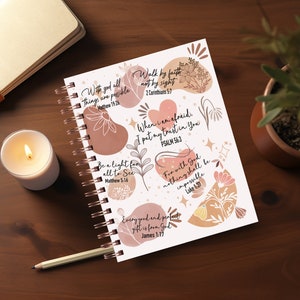 With god all
things are possible
Matthew 19:26
Walk by faith
not by sight
2 Corinthians 5:7
When i am afraid,
i put my trust in You
PSALM 56:3
Be a light for
all to See
Matthew 5:16
For with God
nothing shall be
impossible
Luke 1:37
Every good and perfect
gift is from
James 1:17